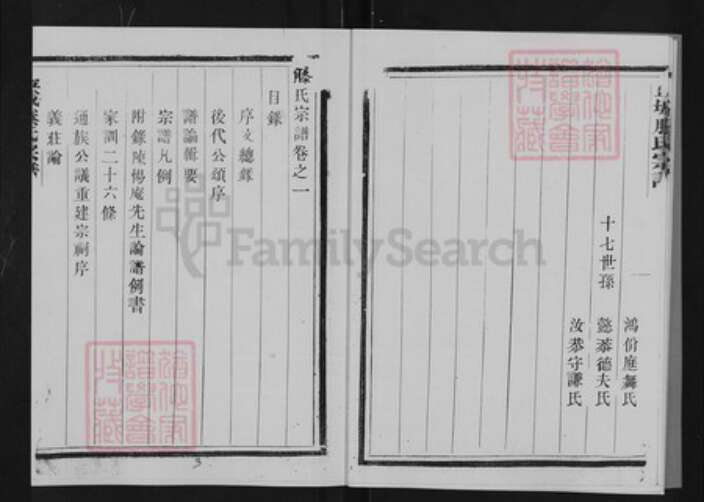 十七世孫
鴻份庭舞氏
懿恭德夫氏
汝恭守謙氏
滕氏宗譜卷之一
目錄
序文總錄
後代公頌序
譜論輯要
宗譜凡例
附錄陳惕庵先生論譜例書
家訓二十六條
通族公議重建宗祠序
義莊論
FamilySearch